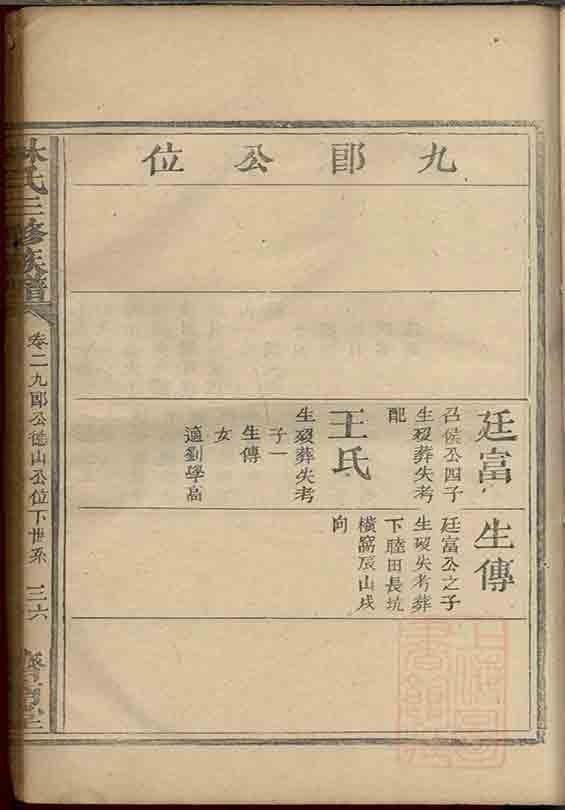 九郎公位
廷富
召侯公四子
生歿葬失考
配
王氏
生歿葬失考
子一
生傳
女
適劉學高
生傳
廷富公之子
生歿失考葬
下睦田長坑
橫窩辰山戌
向
林氏三修族譜
卷二九郎公徳山公位下世系
三六